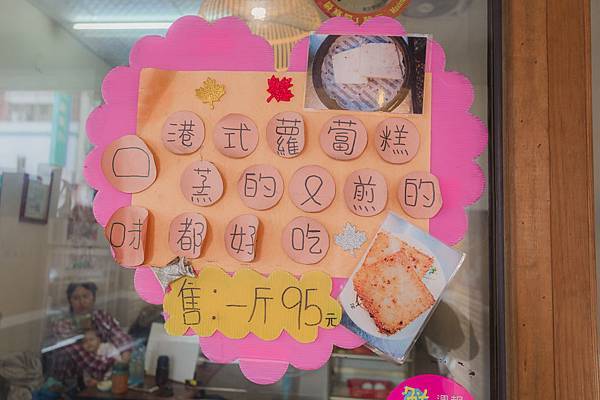 港式蘿蔔糕
口蒸的&煎的
味都好吃
售:一斤95元